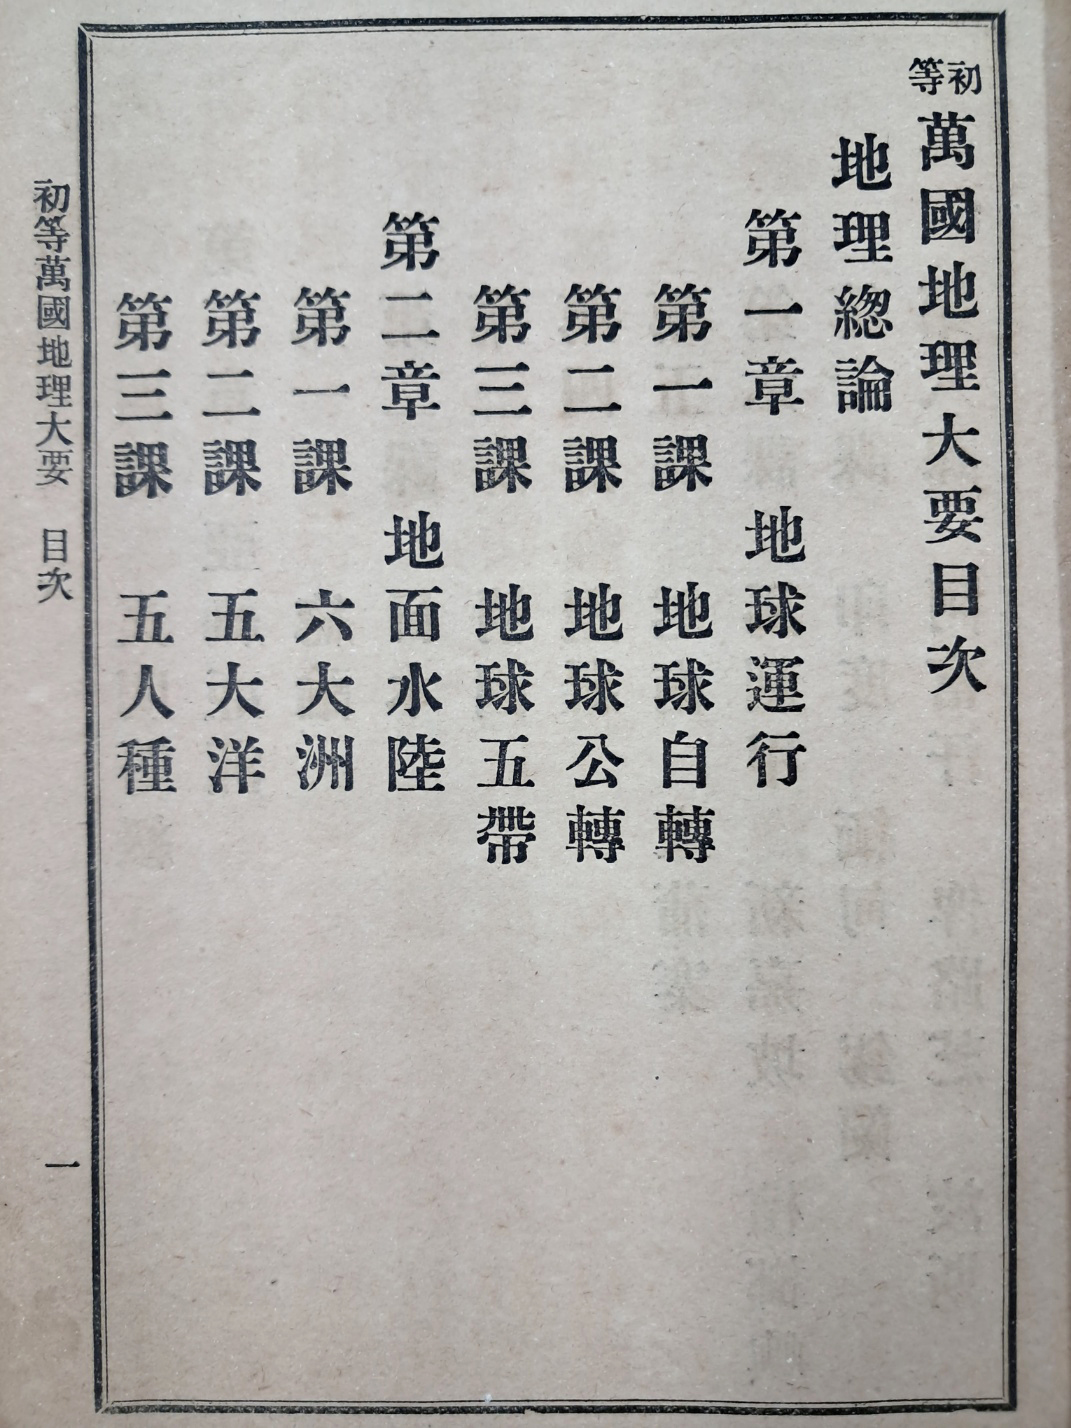 初等萬國地理大要目次
地理總論
第一章　地球運行
第一課　地球自轉
第二課　地球公轉
第三課　地球五帶
第二章　地面水陸
第一課　六大洲
第二課　五大洋
第三課　五人種
初等萬國地理大要　目次
一